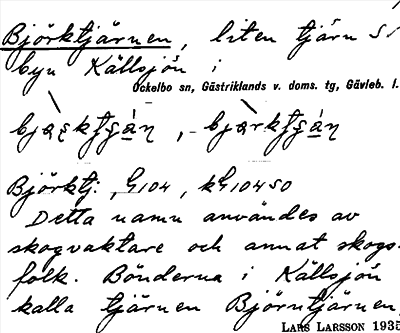 Björktjärnen, liten tjärn SV
byn Källsjön i
Ockelbo sn, Gästriklands v. doms. tg, Gävleb. l.
Björktj:, G104, kG10450
Detta namn användes av
skogvaktare och annat skogs-
folk. Bönderna i Källsjön
kalla tjärnen Björntjärnen,
LARS LARSSON 1935